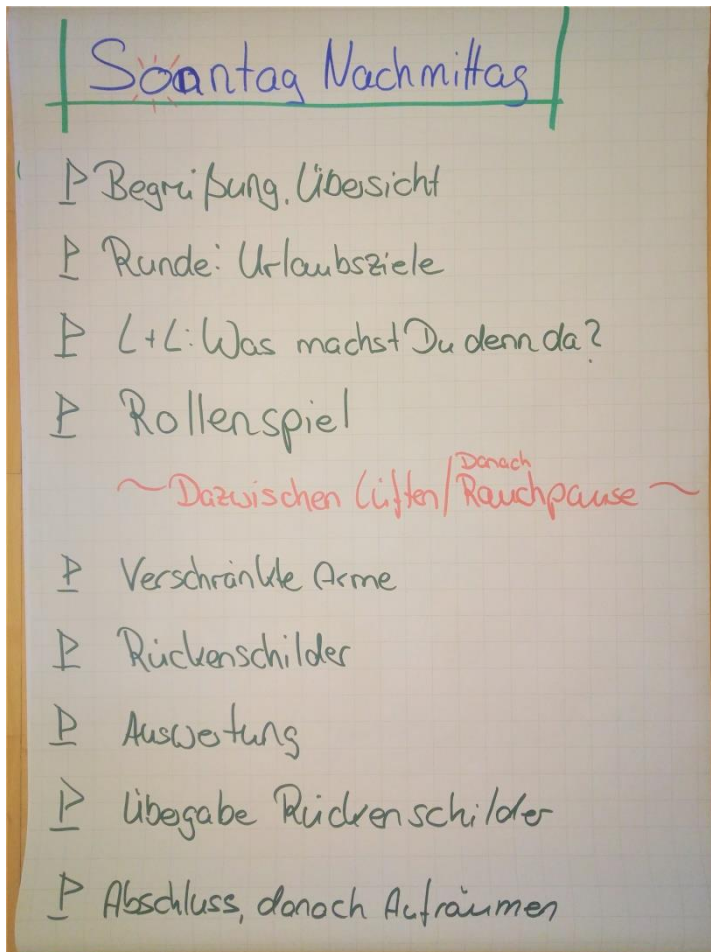 Sonntag Nachmittag
Begrüßung, Übersicht
Runde: Urlaubsziele
L+L: Was machst Du denn da?
Rollenspiel
Danach
~Dazwischen Lüften/Rauchpause~
Verschränkte Arme
Rückenschilder
Auswertung
Übergabe Rückenschilder
Abschluss, danach Aufräumen